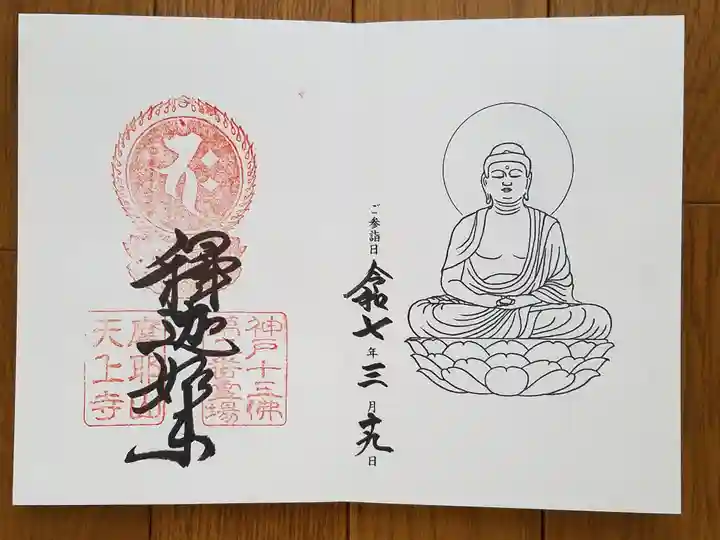 ご参詣日
令和七年三月十九日
釋迦如来
神戸十三佛
第二番霊場
摩耶山
天上寺